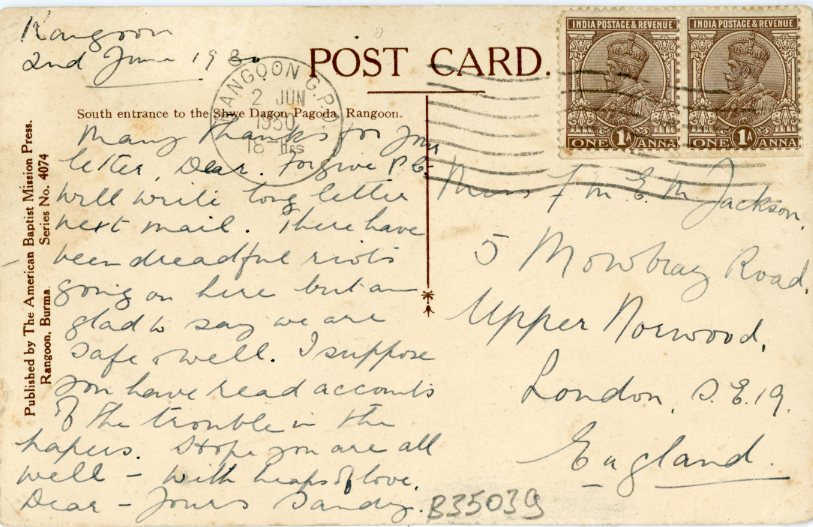 Rangoon
2nd June 1930
POST CARD.
RANGOON G.P.O.
2 JUN
1930
18-Hrs
INDIA POSTAGE & REVENUE
ONE 1A ANNA
INDIA POSTAGE & REVENUE
ONE 1A ANNA
South entrance to the Shwe Dagon Pagoda, Rangoon.
Published by The American Baptist Mission Press.
Rangoon, Burma. Series No. 4074
Many thanks for your
letter, Dear. Forgive P.C.
Will write long letter
next mail. There have
been dreadful riots
going on here but am
glad to say we are
safe & well. I suppose
you have read accounts
of the trouble in the
papers. Hope you are all
well – with heaps of love,
Dear – Yours Sandy.
Miss F. M. E. M. Jackson,
5 Mowbray Road,
Upper Norwood,
London, S.E.19.
England.
B35039